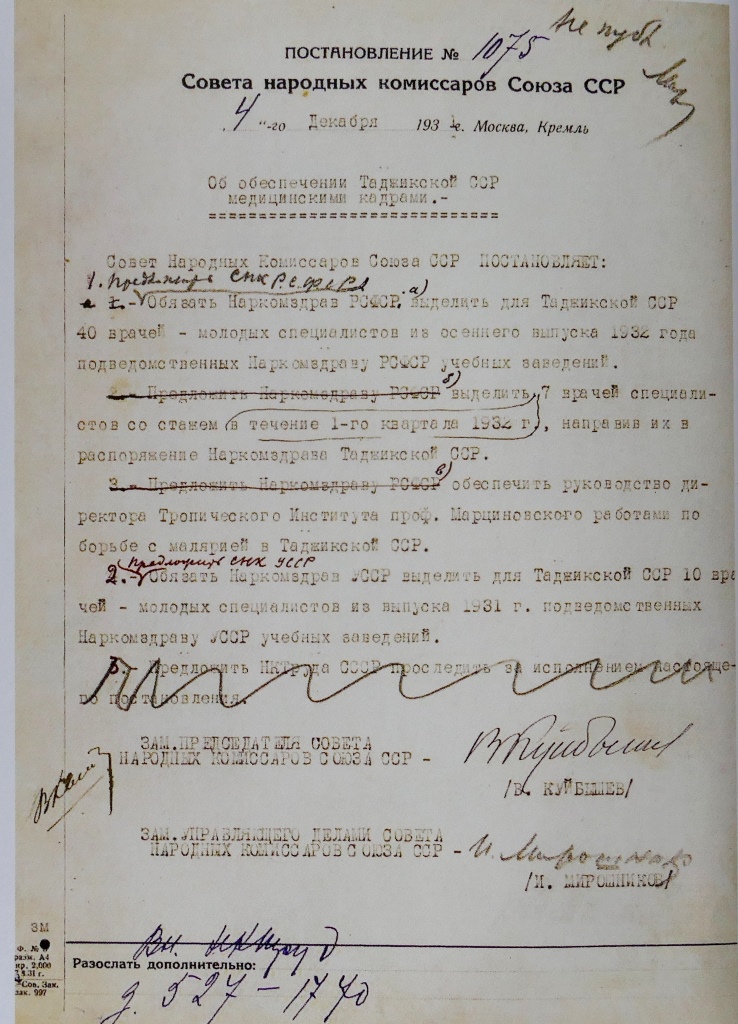 не публ
ПОСТАНОВЛЕНИЕ № 1075
Совета народных комиссаров Союза ССР
„4"-го Декабря 1931 г. Москва, Кремль
Об обеспечении Таджикской ССР
медицинскими кадрами.-
Совет Народных Комиссаров Союза ССР ПОСТАНОВЛЯЕТ:
1. Предложить СНК Р.С.Ф.С.Р.
1.- Обязать Наркомздрав РСФСР, а) выделить для Таджикской ССР
40 врачей - молодых специалистов из осеннего выпуска 1932 года
подведомственных Наркомздраву РСФСР учебных заведений.
2.- Предложить Наркомздраву РСФСР б) выделить 7 врачей специали-
стов со стажем в течение 1-го квартала 1932 г., направив их в
распоряжение Наркомздрава Таджикской ССР.
3.- Предложить Наркомздраву РСФСР в) обеспечить руководство ди-
ректора Тропического Института проф. Марциновского работами по
борьбе с малярией в Таджикской ССР.
Предложить СНК УССР
2.- Обязать Наркомздрав УССР выделить для Таджикской ССР 10 вра
чей - молодых специалистов из выпуска 1931 г. подведомственных
Наркомздраву УССР учебных заведений.
5.- Предложить НКТруда СССР проследить за исполнением настояще-
го постановления.
ЗАМ.ПРЕДСЕДАТЕЛЯ СОВЕТА
НАРОДНЫХ КОМИССАРОВ СОЮЗА ССР -
В Куйбышев
/В. КУЙБЫШЕВ/
ЗАМ.УПРАВЛЯЮЩЕГО ДЕЛАМИ СОВЕТА
НАРОДНЫХ КОМИССАРОВ СОЮЗА ССР - И. Мирошников
/И. МИРОШНИКОВ/
ЗМ
Ф. №
разм. А4
ир. 2.000
.31 г.
Сов. Зак.
зак. 997
Вн. НКТруд
Разослать дополнительно:
д. 527-1770